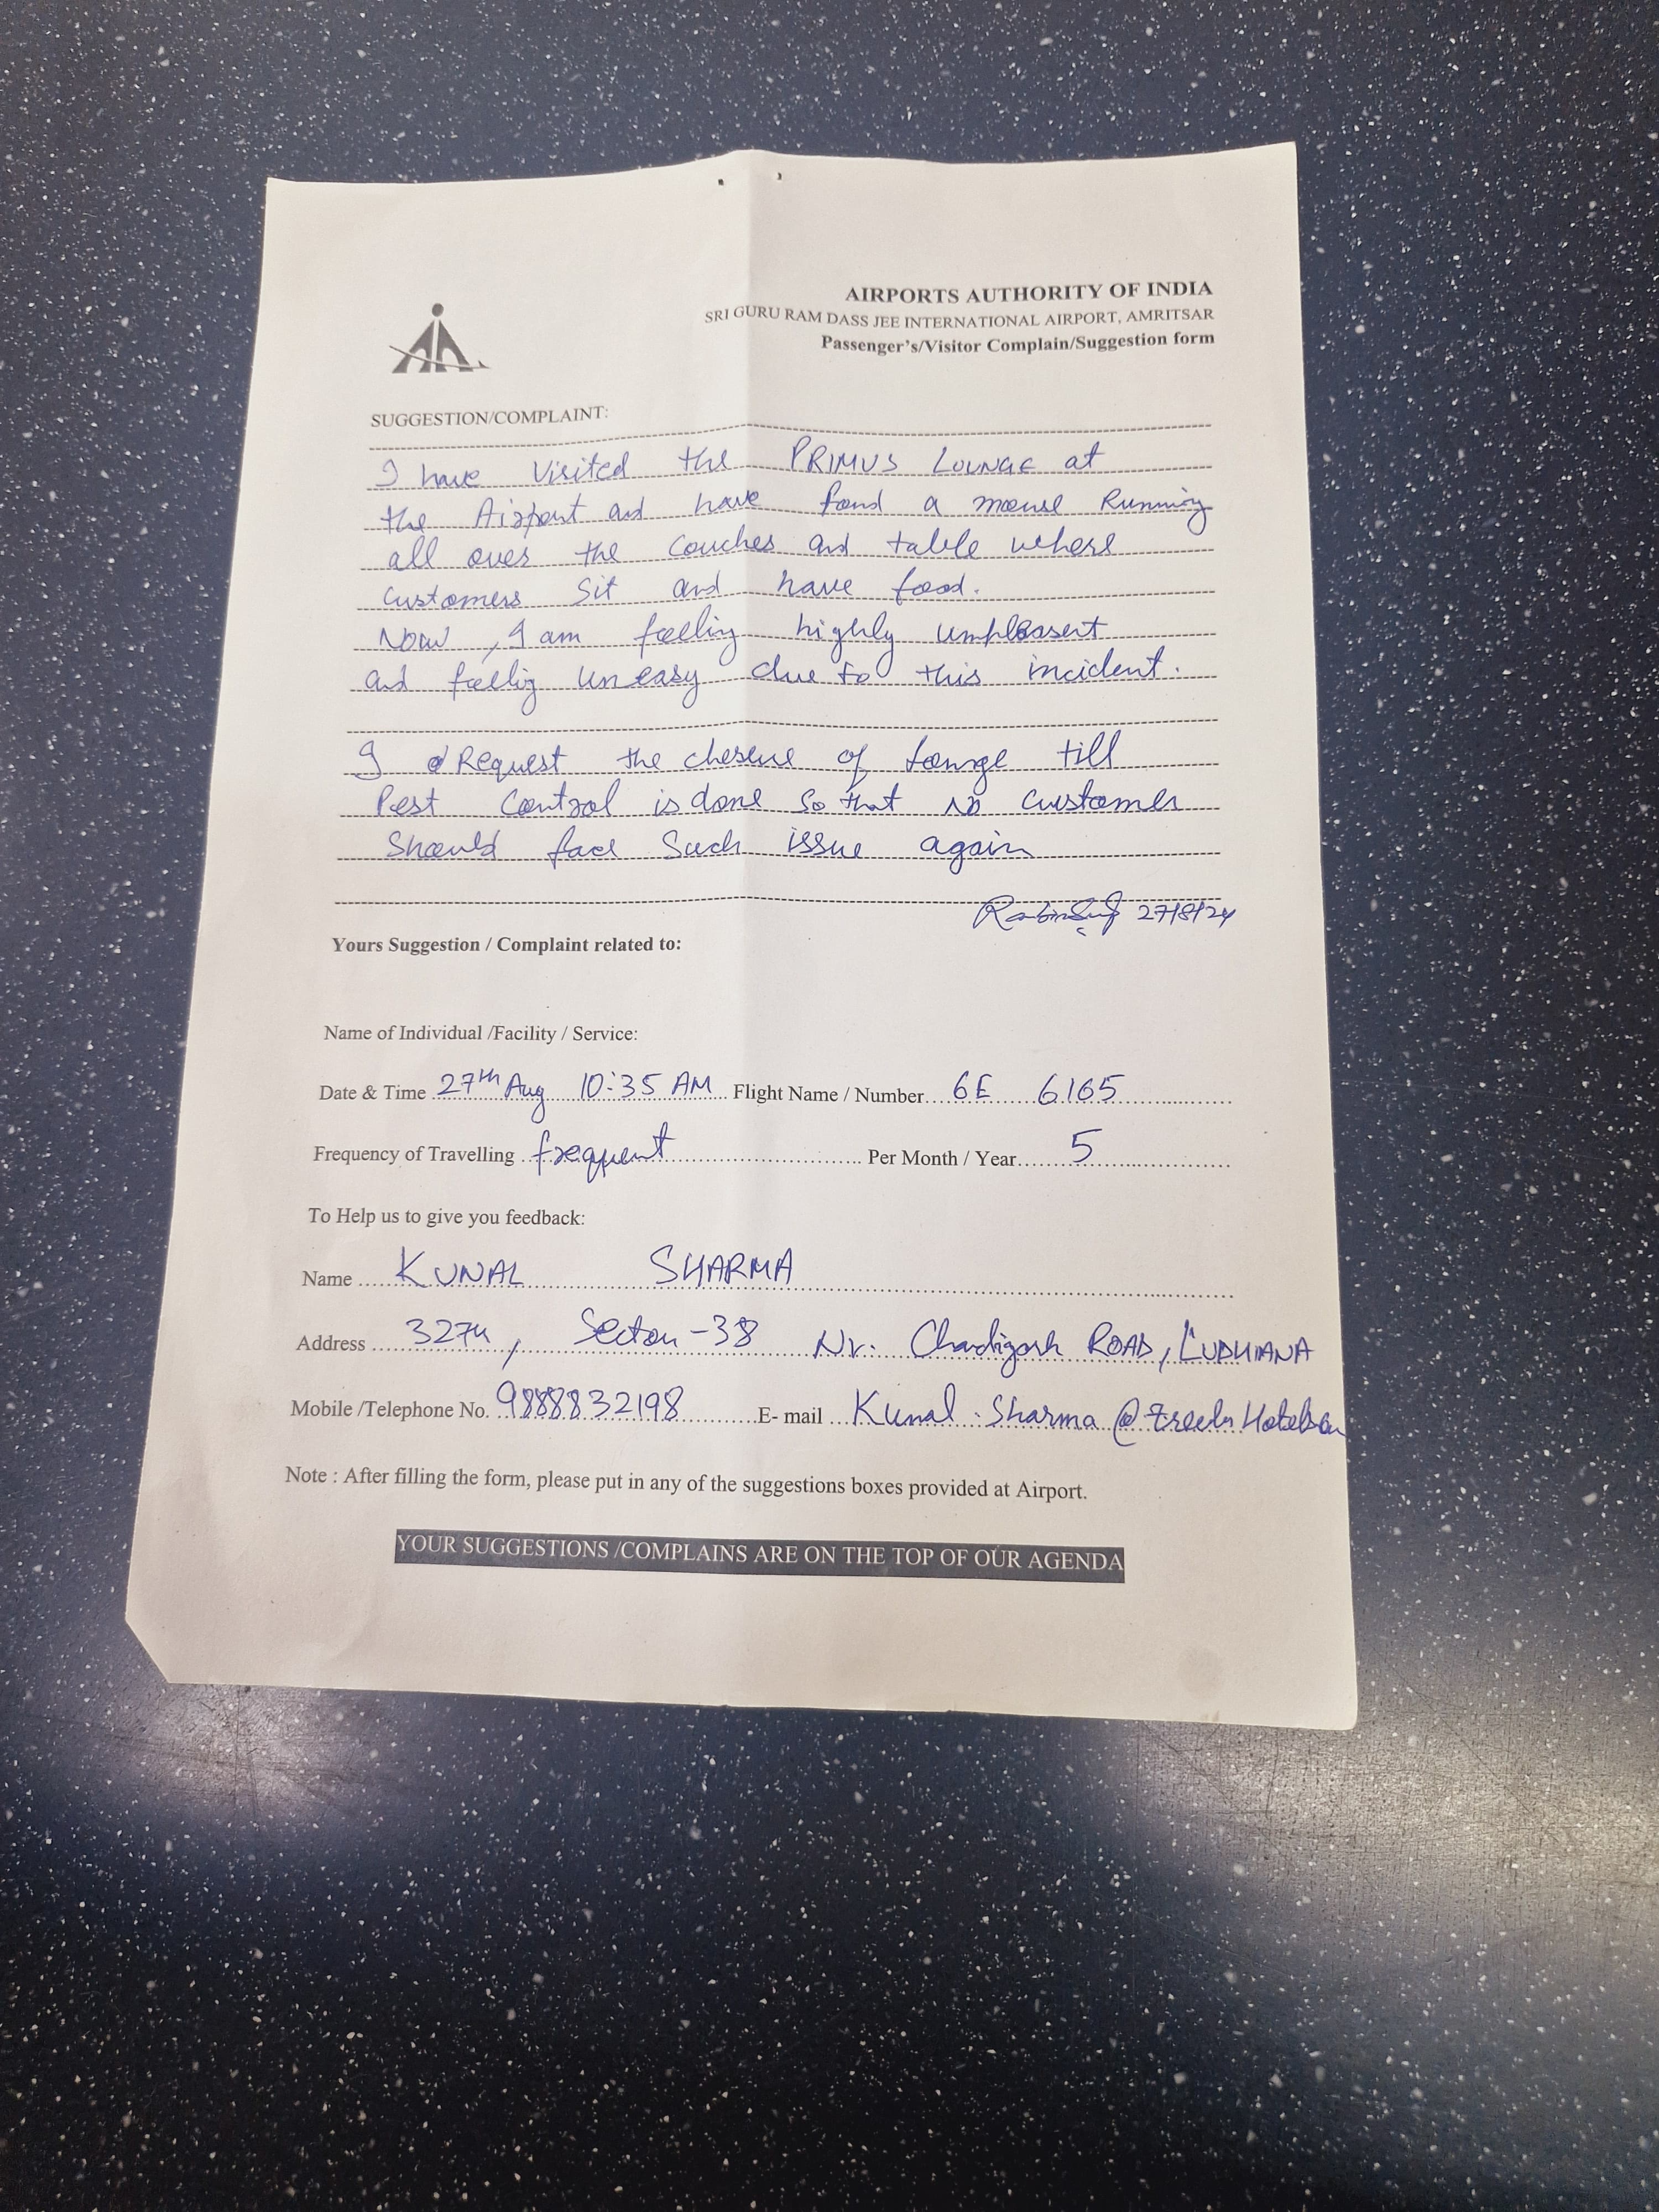 AIRPORTS AUTHORITY OF INDIA
SRI GURU RAM DASS JEE INTERNATIONAL AIRPORT, AMRITSAR
Passenger's/Visitor Complain/Suggestion form
SUGGESTION/COMPLAINT:
I have visited the PRIMUS LOUNGE at
the Airport and have fond a mouse Running
all over the couches and table where
customers sit and have food.
Now, I am feeling highly unpleasent
and feelig uneasy due to this incident.
I Request the of lounge till
Pest Control is done so that no customer
Should face Such issue again
27/8/24
Yours Suggestion / Complaint related to:
Name of Individual /Facility / Service:
Date & Time 27th Aug 10:35 AM Flight Name / Number 6E 6165
Frequency of Travelling frequent Per Month / Year 5
To Help us to give you feedback:
Name KUNAL SHARMA
Address Sector-38 Nr. Chandigarh ROAD, LUDHIANA
Mobile /Telephone No. 9888832198 E- mail Kunal.Sharma@
Note : After filling the form, please put in any of the suggestions boxes provided at Airport.
YOUR SUGGESTIONS /COMPLAINS ARE ON THE TOP OF OUR AGENDA